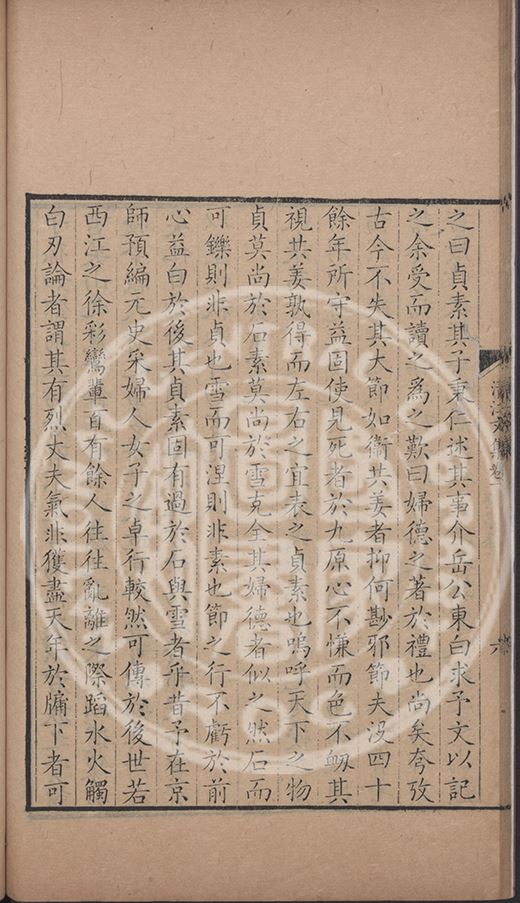 之曰貞素其子秉仁述其事介岳公東白求予文以記
之余受而讀之爲之歎曰婦德之著於禮也尚矣夸攷
古今不失其大節如衛共姜者抑何尠邪節夫没四十
餘年所守益固使見死者於九原心不慊而色不衂其
視共姜孰得而左右之宜表之貞素也嗚呼天下之物
貞莫尚於石素莫尚於雪克全其婦德者似之然石而
可鑠則非貞也雪而可涅則非素也節之行不虧於前
心益白於後其貞素固有過於石與雪者乎昔予在京
師預編元史采婦人女子之卓行較然可傳於後世若
西江之徐彩鸞輩百有餘人往往亂離之際蹈水火觸
白刃論者謂其有烈丈夫氣非獲盡天年於牖下者可